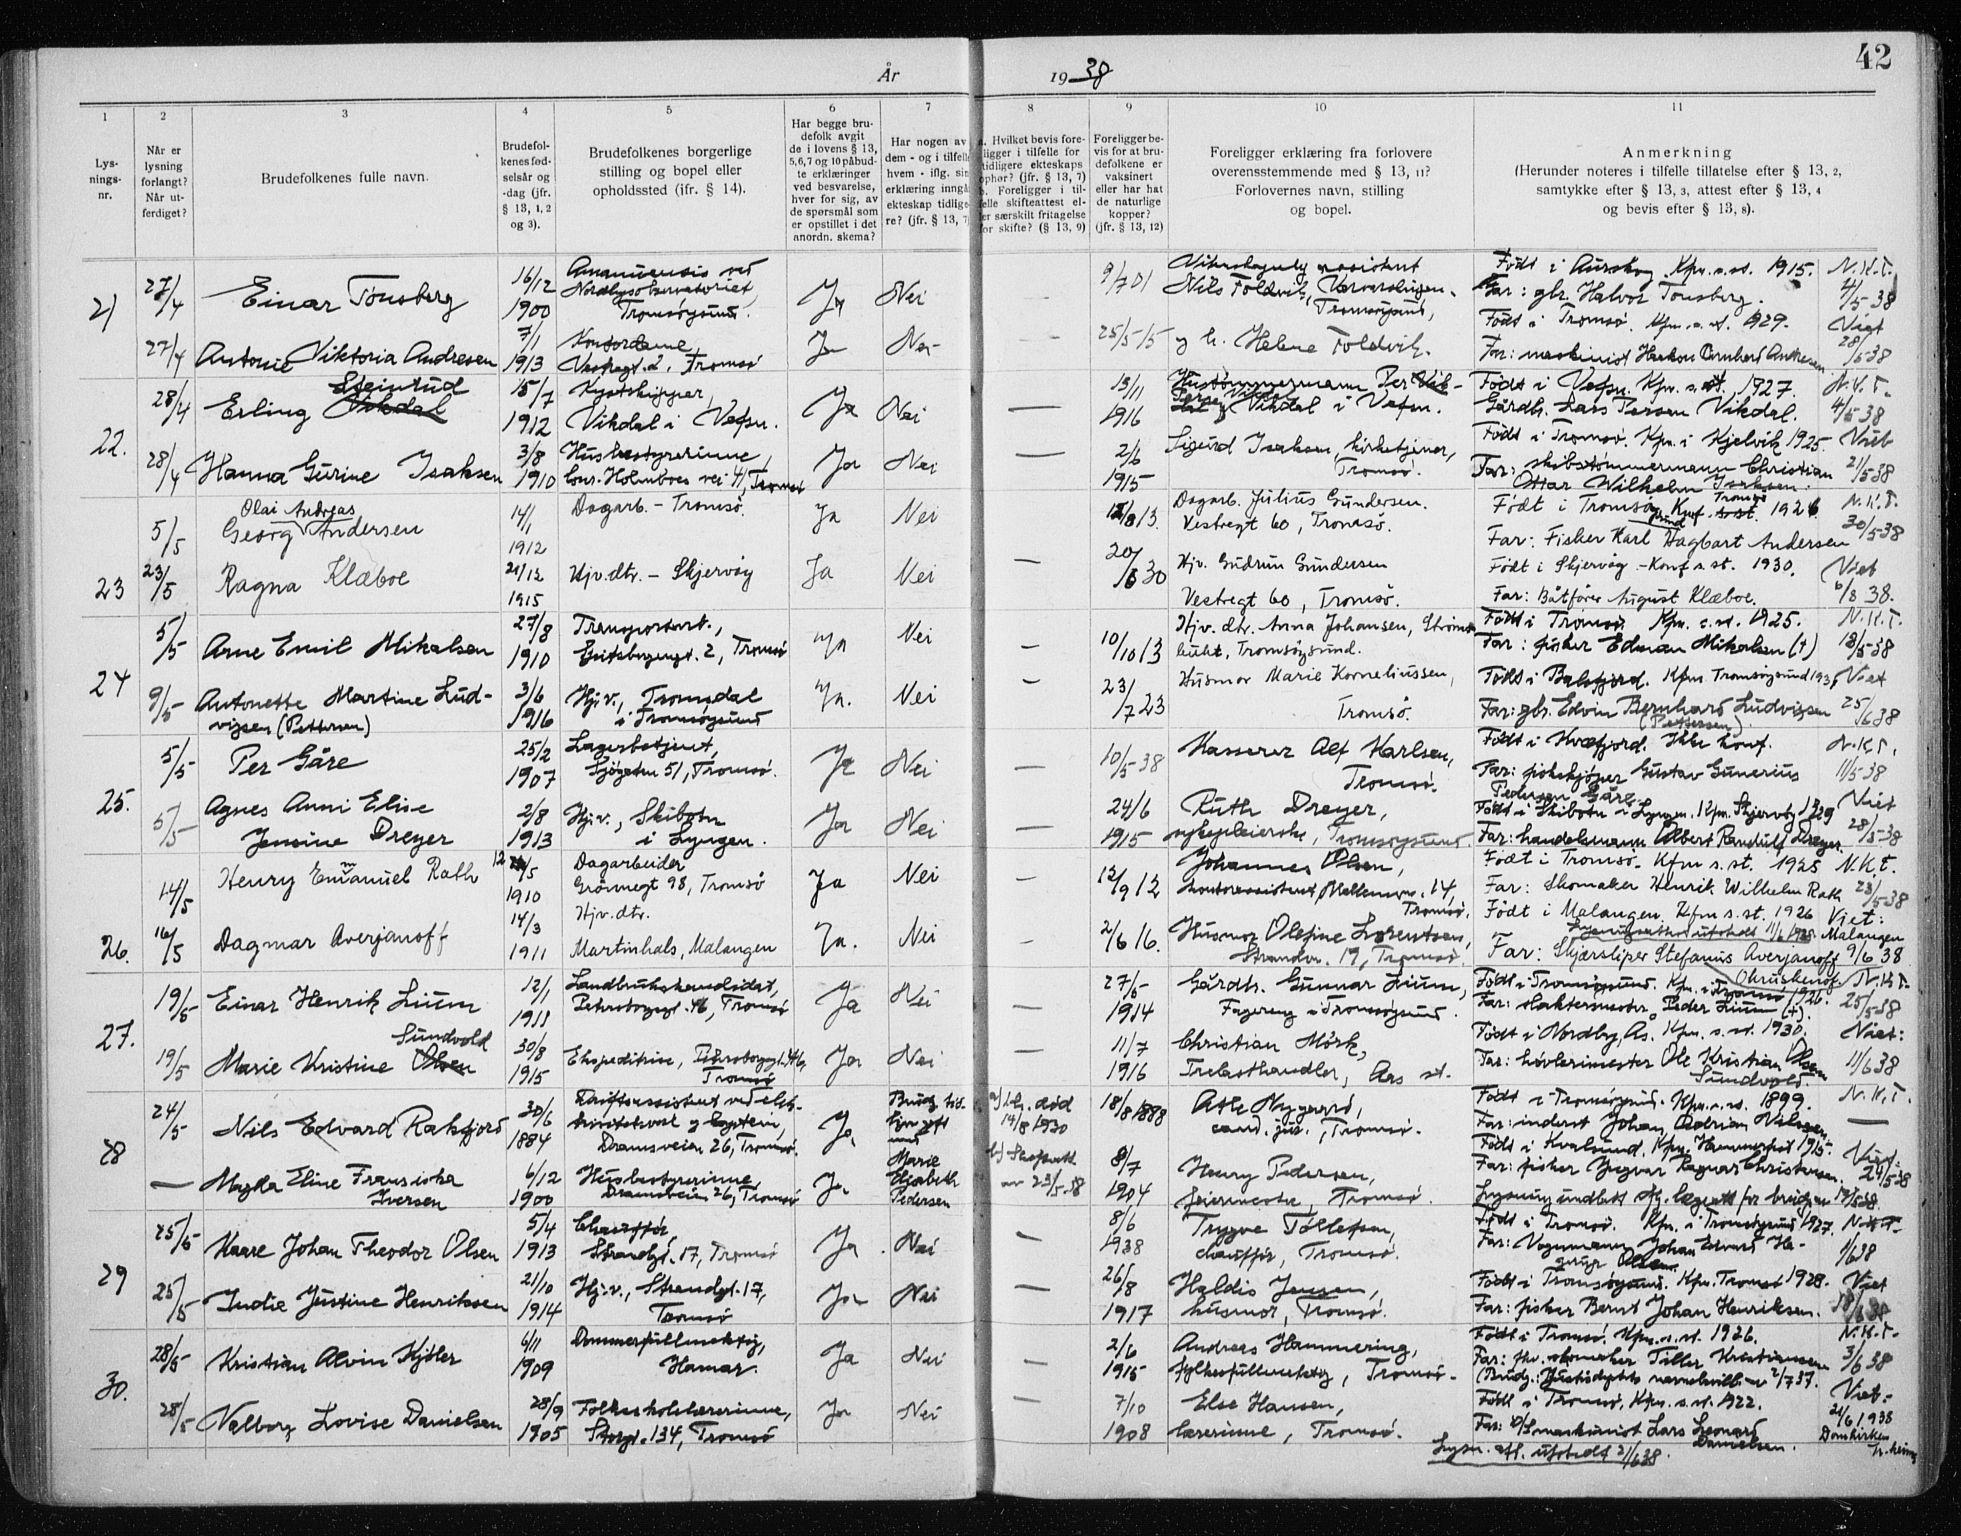 År 1938
42
1 2 3 4 5 6 7 8 9 10 11
Lys-
nings-
nr.
Når er
lysning
forlangt?
Når ut-
ferdiget?
Brudefolkenes fulle navn.
Brudefol-
kenes fød-
selsår og
-dag (jfr.
§ 13, 1, 2
og 3).
Brudefolkenes borgerlige
stilling og bopel eller
opholdssted (jfr. § 14).
Har begge bru-
defolk avgit
de i lovens § 13,
5,6,7 og 10 påbud-
te erklæringer
ved besvarelse,
hver for sig, av
de spørsmål som
er opstillet i det
anordn. skema?
Har nogen av
dem - og i tilfelle
hvem - iflg. sin
erklæring inngå
ekteskap tidlige-
re? (jfr. § 13, 7)
a. Hvilket bevis fore-
ligger i tilfelle for
tidligere ekteskaps
ophør? (jfr. § 13, 7)
b. Foreligger i til-
felle skifteattest el-
ler særskilt fritagelse
for skifte? (§ 13, 9)
Foreligger be-
vis for at bru-
defolkene er
vaksinert
eller har hat
de naturlige
kopper?
(jfr. § 13, 12)
Foreligger erklæring fra forlovere
overensstemmende med § 13, 11?
Forlovernes navn, stilling
og bopel.
Anmerkning
(Herunder noteres i tilfelle tillatelse efter § 13, 2,
samtykke efter § 13, 3, attest efter § 13, 4
og bevis efter § 13, 8).
21
27/4 Einar Tønsberg 16/12 1900
Amanuensis ved
Nordlysobservatoriet,
Tromsøysund.
Ja Nei 9/7 01
Nils Foldvik,
Tromsøysund,
Født i Aurskog. Kfm. s. st. 1915. N.K.T.
Far: gbr. Halvor Tønsberg. 4/5-38
27/4 Antonie Viktoria Andresen 7/1 1913
Kontordame,
Vestregt. 2, Tromsø
Ja Nei - 25/5-15
og h. Helene Foldvik.
Født i Tromsø. Kfm. s. st. 1929. Viet
Far: maskinist Haakon Bernhard Andresen 28/5-38
22.
28/4 Erling Vikdal Steinrud 15/7 1912
Vikdal i Vefsn.
Ja Nei — 13/11 1916
Hustømmermann Per
Vikdal i Vefsn.
Født i Vefsn. Kfm. s. st. 1927. N.K.T.
Gårdb. Lars Persen Vikdal. 4/5-38
28/4 Hanna Gurine Isaksen 3/8 1910
Husbestyrerinne,
Cons. Holmboes vei 41, Tromsø
Ja Nei — 2/6 1915
Sigurd Isaksen, kirketjener,
Tromsø.
Født i Tromsø. Kfm. i Kjelvik 1925. Viet
Far: skibstømmermann Christian 21/5-38
Ottar Wilhelm Isaksen.
23
5/5 Georg Olai Andreas Andersen 14/1 1912
Dagarb. - Tromsø.
Ja Nei
Dagarb. Julius Gundersen.
Vestregt 60, Tromsø.
Født i Tromsøsund Konf. s. st. Tromsø 1926 N.K.T.
Far: Fisker Karl Dagbart Andersen 30/5-38
23/5 Ragna Klæboe 21/12 1915
Hjv. dtr. - Skjervøy
Ja Nei — 20/6 30
Hjv. Gudrun Gundersen
Vestregt 60, Tromsø.
Født i Skjervøy - Konf s. st. 1930. Viet
Far: Båtfører August Klæboe. 6/8 38.
24
5/5 Arne Emil Mikalsen 27/8 1910
Transportarb.,
2, Tromsø
Ja Nei — 10/10 13
Hjv. dtr. Anna Johansen, Strøms-
bukt, Tromsøysund.
Født i Tromsø. Kfm. s. st. 1925. N.K.T.
Far: fisker Edman Mikalsen (†) 18/5-38
9/5 Antonette Martine Lud-
vigsen (Pettersen) 3/6 1916
Hjv., Tromsdal
i Tromsøysund
Ja. Nei — 23/7 23
Husmor Marie Korneliussen,
Tromsø.
Født i Balsfjord. Kfm. Tromsøysund 193 Viet
Far: gbr. Edvin Bernhard Ludvigsen 25/6 38
(Pettersen)
25.
5/5 Per Gåre 25/2 1907
Lagerbetjent,
Sjøgaten 51, Tromsø.
Ja Nei — 10/5-38
Kasserer Alf Karlsen,
Tromsø.
Født i Kvæfjord. Ikke konf. N.K.T.
Far: fiskekjøper Gustav Gunerius 11/5 38
Pedersen Gåre
5/5 Agnes Anni Elise
Jensine Dreyer 2/8 1913
Hjv., Skibotn
i Lyngen.
Ja Nei — 24/6 1915
Ruth Dreyer,
sykepleierske, Tromsøysund.
Født i Skibotn i Lyngen. Kfm. Skjervøy 1929 Viet
Far: handelsmann Albert Randulf Dreyer. 28/5-38
26.
14/5 Henry Emmanuel Rath 12/5 1910
Dagarbeider
Grønnegt 98, Tromsø
Ja Nei 12/9 12
Johannes Olsen,
kontorassistent, Mellemvn. 14,
Tromsø.
Født i Tromsø. Kfm s. st. 1925 N.K.T.
Far: Skomaker Henrik Wilhelm Rath 23/5-38
16/5 Dagmar Averjanoff 14/3 1911
Hjv. dtr.
Martinhals, Malangen
Ja. Nei - 2/6 16.
Husmor Olefine Lorentsen,
Strandvn. 19, Tromsø.
Født i Malangen. Kfm s. st. 1926 Viet:
Lysningsattest utstedt 11/6 1938 Malangen
Far: Skjærsliper Stefanus Averjanoff 9/6 38
27.
19/5 Einar Henrik Lium 12/1 1911
Landbrukskandidat,
Petersborggt. 46, Tromsø
Ja Nei — 27/5 1914
Gårdb. Gunnar Lium,
Fagereng i Tromsøysund.
Født i Tromsøysund. Kfm. i Tromsø 1926. N.K.T.
Far: slaktermester Peder Lium (†). 25/5-38
19/5 Marie Kristine Olsen Sundvold 30/8 1915
Ekspeditrise, Petersborggt. 46,
Tromsø
Ja Nei — 11/7 1916
Christian Mörk,
Trelasthandler, Aas st.
Født i Nordby, Ås. Kfm. s. st. 1930. Viet:
Far: høvlerimester Ole Kristian Olsen 11/6 38
Sundvold.
28
24/5 Nils Edvard Rakfjord 30/6 1884
Driftsassistent ved
Dramsveien 26, Tromsø.
Ja
Marie
Elisabeth
Pedersen
død
14/8 1930
b) Skifteatt.
av 23/5-38
18/8 1888
Atle Nygaard,
cand. jur., Tromsø.
Født i Tromsøysund. Kfm. s. st. 1899. N.K.T.
Far: inderst Johan Adrian Nilssen —
— Magda Eline Fransiska
Iversen 6/12 1900
Husbestyrerinne,
Dramsveien 26, Tromsø
Ja 8/7 1904
Henry Pedersen,
feiermester, Tromsø.
Født i Kvalsund. Kfm. Hammerfest 1915. Viet:
Far: fisker Yngvar Ragnar Christensen. 24/5-38
29
25/5 Kaare Johan Theodor Olsen 5/4 1913
Chauffør,
Strandgt. 17, Tromsø
Ja Nei — 8/6 1938
Trygve Tollefsen,
chauffør, Tromsø.
Født i Tromsø. Kfm. i Tromsøysund 1927. N.K.T.
Far: Vognmann Johan Edvard 1/6 38
Olsen
25/5 Indie Justine Henriksen 21/10 1914
Hjv., Strandgt. 17,
Tromsø
Ja Nei — 26/8 1917
Haldis Jensen,
husmor, Tromsø.
Født i Tromsøysund. Kfm. Tromsø 1928. Viet
Far: fisker Bernt Johan Henriksen. 18/6 38
30.
28/5 Kristian Alvin Kjøler 6/11 1909
Dommerfullmektig,
Hamar.
Ja Nei — 2/6 1915
Andreas Hammering,
fylkesfullmektig, Tromsø.
Født i Tromsø. Kfm. s. st. 1926. N.K.T.
Far: fhv. skomaker Tiller Kristiansen 3/6 38
2/7 37.
28/5 Valborg Lovise Danielsen 28/9 1905
Folkeskolelærerinne,
Storgt. 134, Tromsø
Ja Nei — 7/10 1908
Else Hansen,
lærerinne, Tromsø.
Født i Tromsø. Kfm. s. st. 1922. Viet-
Far: maskinist Lars Leonard 21/6 1938
Danielsen. Domkirken
Tr.heim
Lysn. att. utstedt 2/6 38.